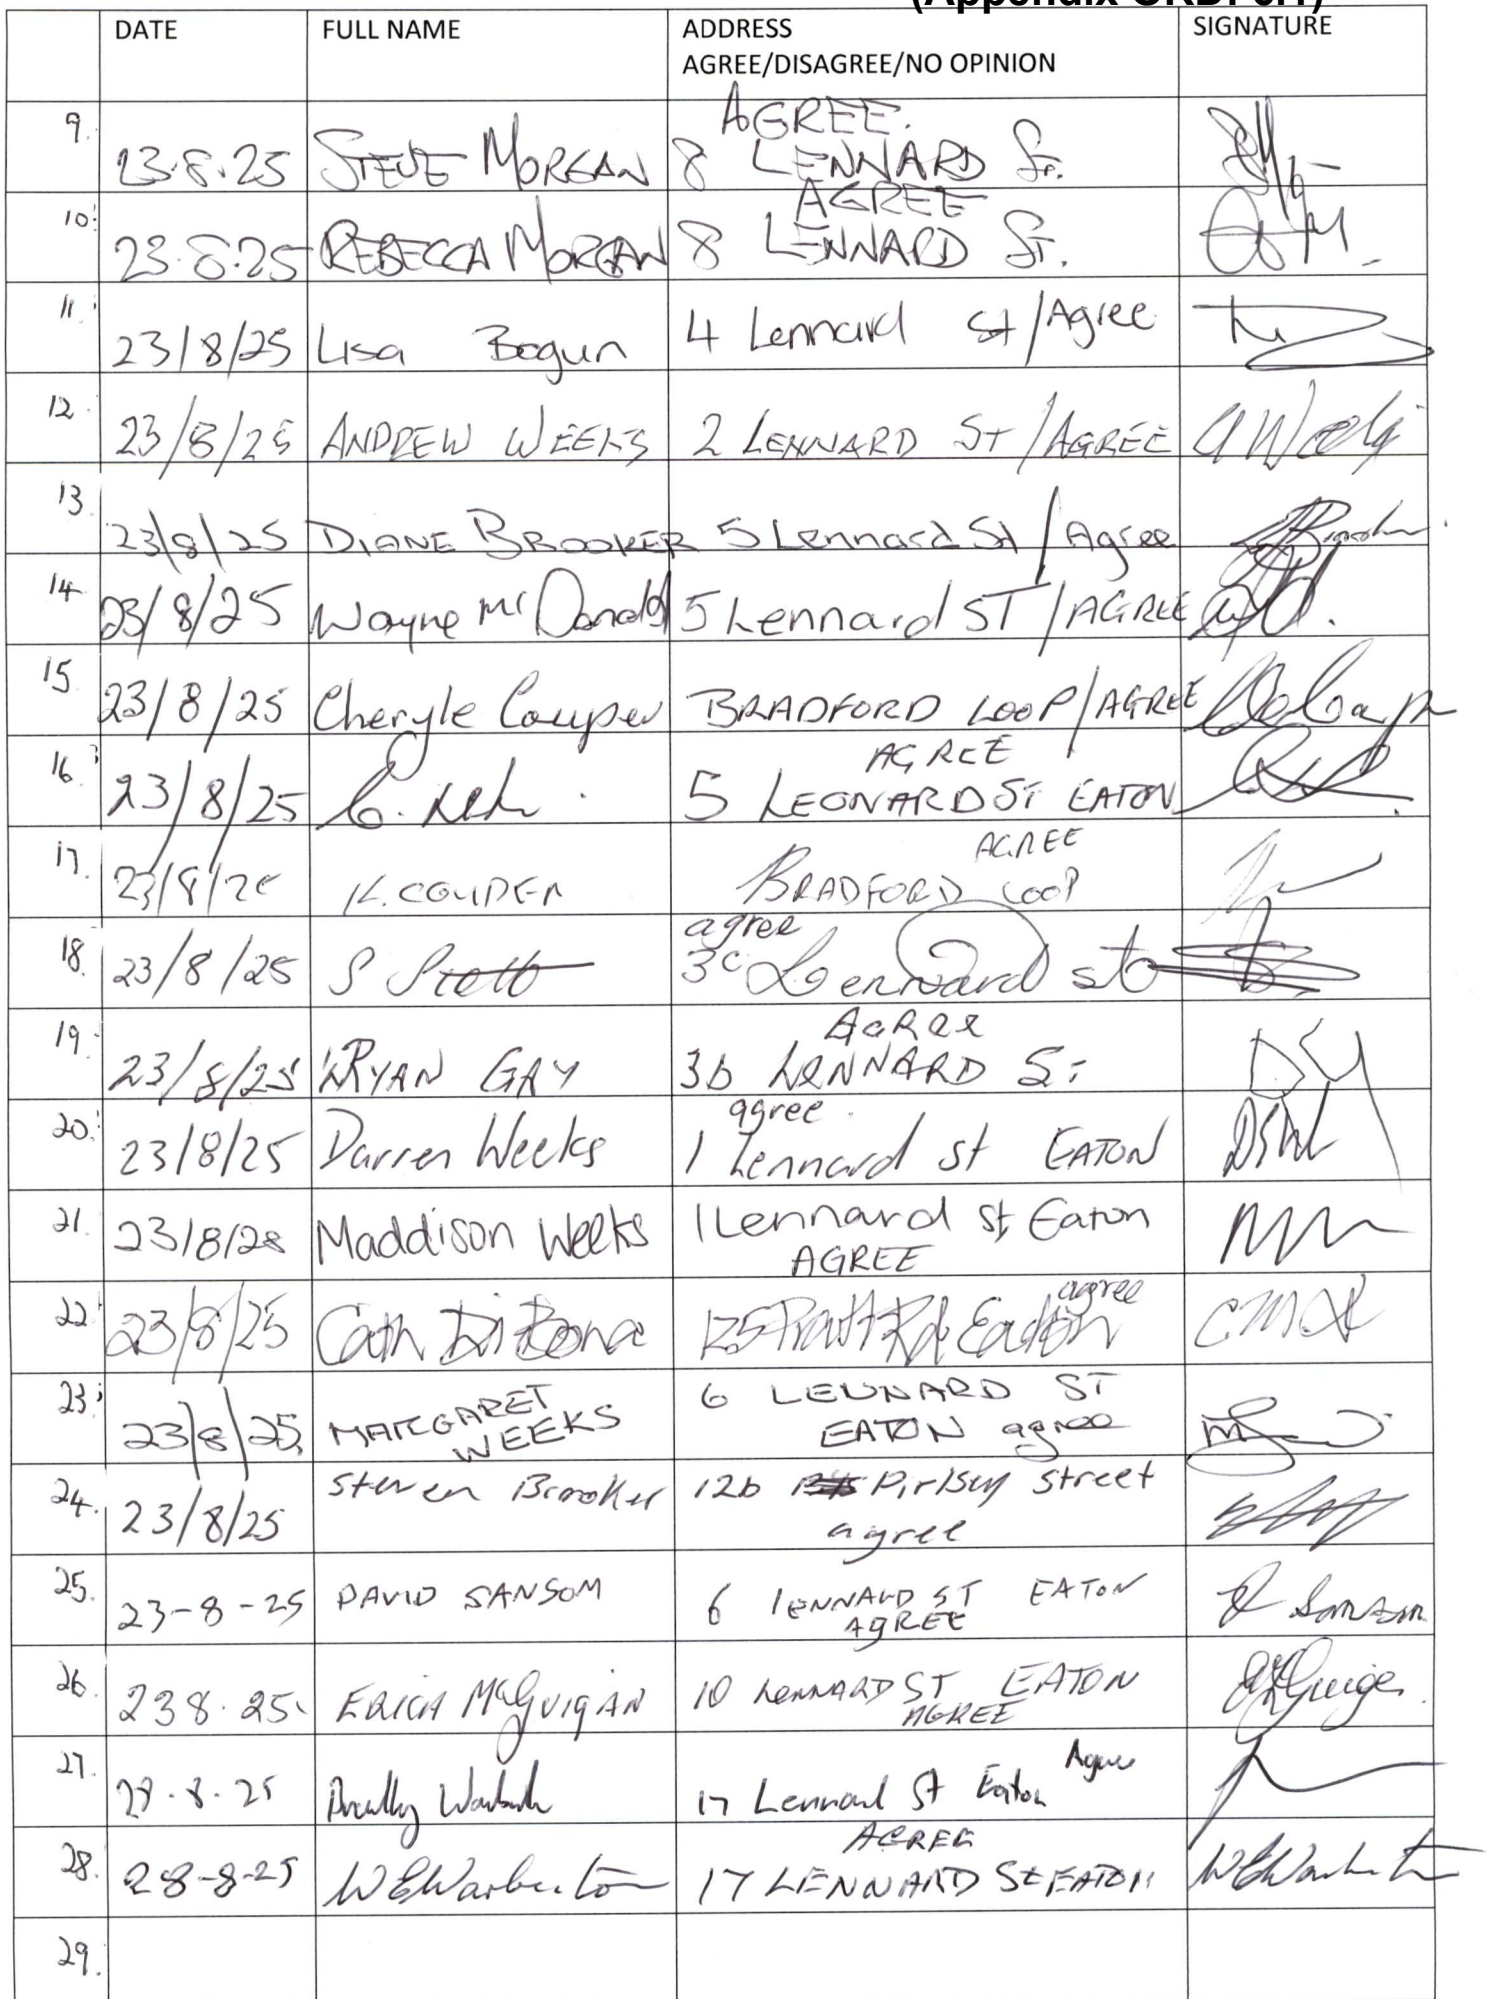 (Appendix ORD:
DATE FULL NAME ADDRESS SIGNATURE
AGREE/DISAGREE/NO OPINION
AGREE.
9. 23.8.25 STEVE MORGAN 8 LENNARD St.
AGREE
10. 23.8.25 REBECCA MORGAN 8 LENNARD St.
11. 23/8/25 Lisa Bogun 4 Lennard St/Agree
12. 23/8/25 ANDREW WEEKS 2 LENNARD ST/AGREE A Weeks
13 23/8/25 DIANE BROOKER 5 Lennard St/Agree
14 23/8/25 Wayne McDonald 5 Lennard ST/AGREE
15 23/8/25 Cheryle Couper BRADFORD LOOP/AGREE
AGREE
16. 23/8/25 5 LEONARD ST EATON
AGREE
17. 23/8/25 K. BRADFORD LOOP
agree
18. 23/8/25 S Stott 3c Lennard st
AGREE
19. 23/8/25 RYAN GAY 3b LENNARD ST
agree
20. 23/8/25 Darren Weeks 1 Lennard st EATON
21. 23/8/28 Maddison Weeks 1 Lennard st, Eaton
AGREE
agree
22 23/8/25 Cath Di Bona 125 Pratt Rd Eaton
23. 23/8/25 MARGARET 6 LENNARD ST
WEEKS EATON agree
24. 23/8/25 Steven Brooker 12b Street
agree
25. 23-8-25 DAVID SANSOM 6 LENNARD ST EATON D Sansom
AGREE
26. 23 8.25 ERICA McGUIGAN 10 LENNARD ST EATON
AGREE
Agree
27. 28.8.25 17 Lennard St Eaton
AGREE
28. 28-8-25 WE Warburton 17 LENNARD St EATON WE Warburton
29.